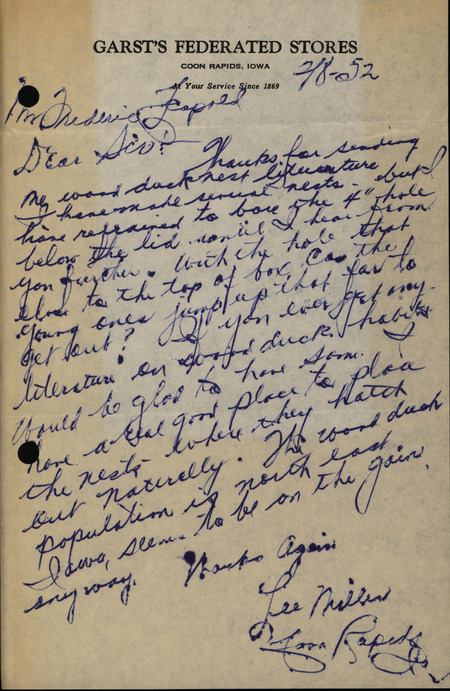 GARST'S FEDERATED STORES
COON RAPIDS, IOWA
At Your Service Since 1869
2/8-52
Mr Frederic Leopold
Dear Sir:
Thanks for sending
me wood duck nest literature
I have made several nests - but
have refrained to bore the 4" hole
below the lid until I hear from
you further. With the hole that
close to the top of box, can the
young ones jump up that far to
get out? If you ever get any
literature on wood duck habits
would be glad to have some. I
have a real good place to place
the nests where they hatch
out naturally. The wood duck
population in north east
Iowa, seems to be on the gain
anyway.
Thanks Again
Lee Miller
Coon Rapids
Ia